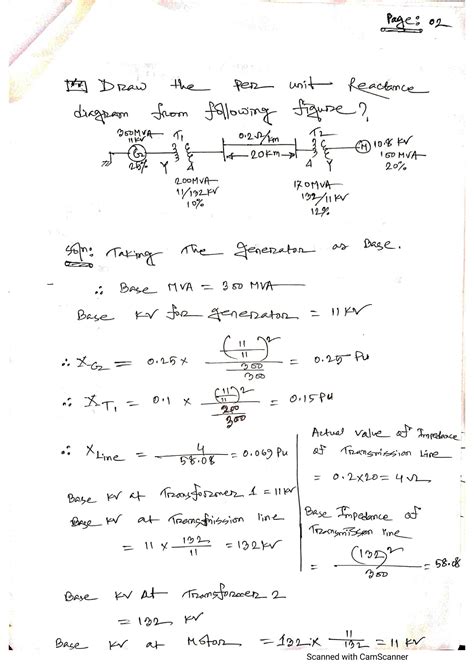 Page: 02
Draw the per unit Reactance
diagram from following figure?
300MVA
11KV
G
25%
T1
Y
200MVA
11/132KV
10%
0.2Ω/Km
20Km
T2
Y
170MVA
132/11KV
12%
M
10.8 KV
150MVA
20%
Soln: Taking The generator as Base.
∴ Base MVA = 300 MVA
Base KV for generator = 11 KV
∴ XG = 0.25 × (11/11)² / (300/300) = 0.25 Pu
∴ XT1 = 0.1 × (11/11)² / (200/300) = 0.15 Pu
∴ XLine = 4/58.08 = 0.069 Pu
Base KV at Transformer 1 = 11KV
Base KV at Transmission line
= 11 × 132/11 = 132KV
Actual value of Impedance
of Transmission Line
= 0.2×20 = 4Ω
Base Impedance of
Transmission line
= (132)²/300 = 58.08
Base KV At Transformer 2
= 132 KV
Base KV at Motor = 132 × 11/132 = 11 KV
Scanned with CamScanner